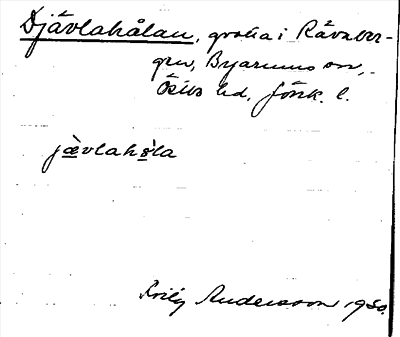 Djävlahålan, grotta i Rävaber-
gen, Bryarums sn,
Östbo hd. Jönk. l.
jævlahola
Andersson 1930.